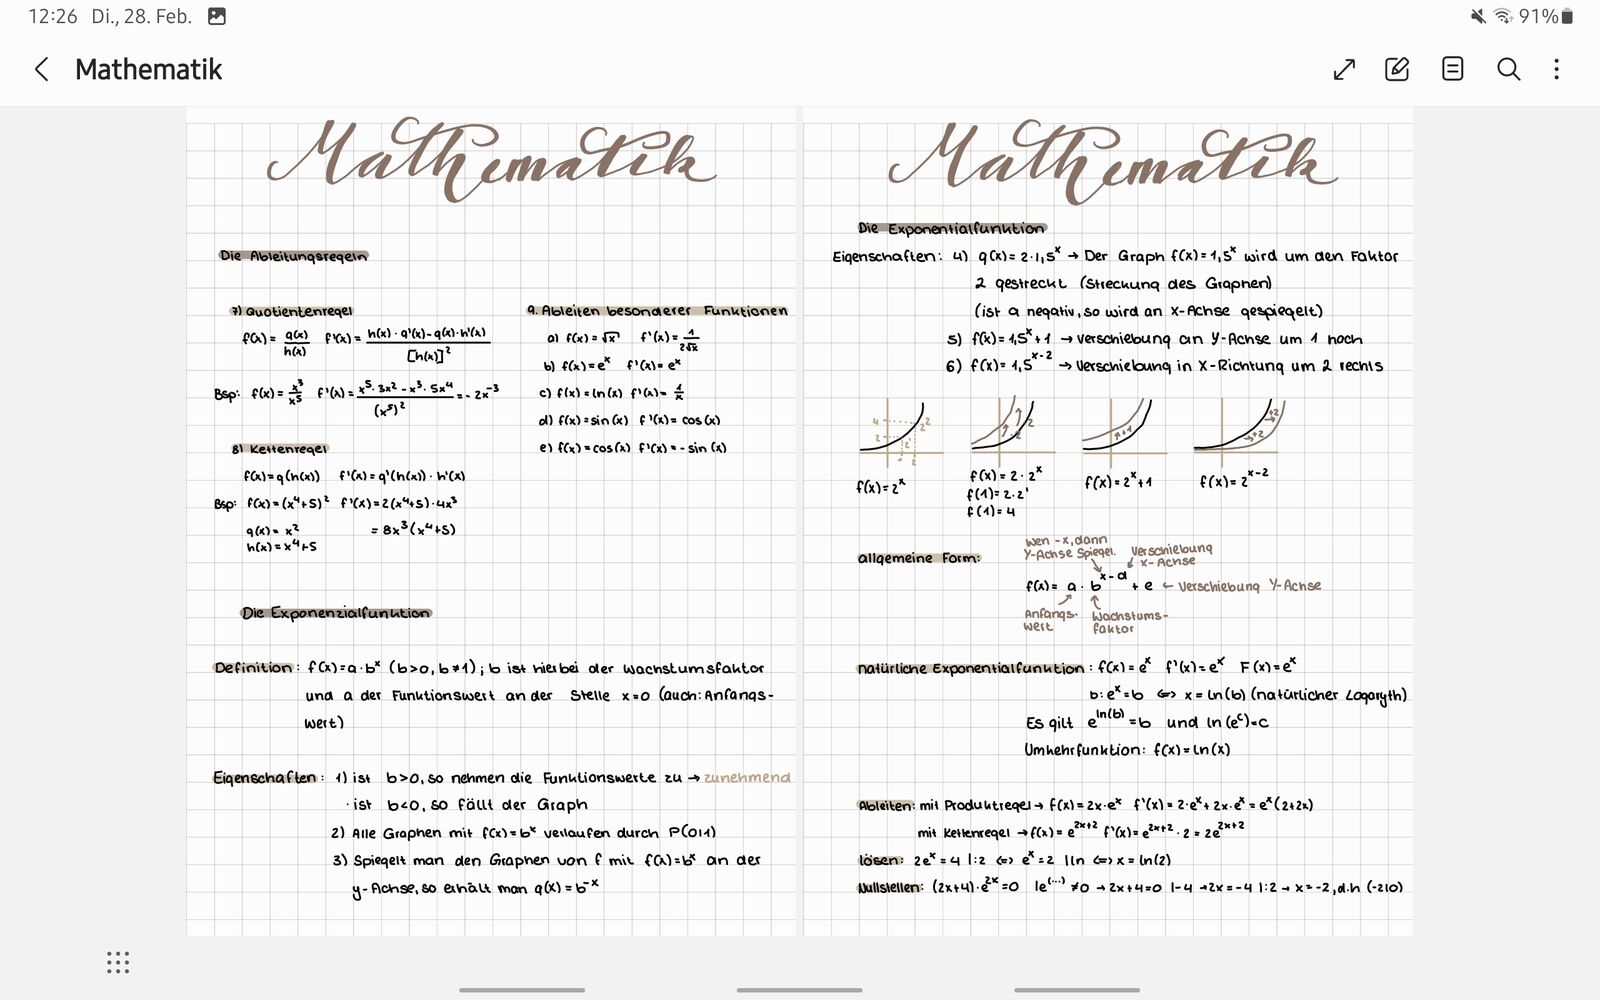 12:26 Di., 28. Feb. 91%
Mathematik
Mathematik
Die Ableitungsregeln
7) Quotientenregel
f(x) = g(x)/h(x) f'(x) = h(x)·g'(x)-g(x)·h'(x)/[h(x)]²
Bsp: f(x) = x³/x⁵ f'(x) = x⁵·3x²-x³·5x⁴/(x⁵)² = -2x⁻³
8) Kettenregel
f(x) = g(h(x)) f'(x) = g'(h(x))·h'(x)
Bsp: f(x) = (x⁴+5)² f'(x) = 2(x⁴+5)·4x³
g(x) = x² = 8x³(x⁴+5)
h(x) = x⁴+5
9. Ableiten besonderer Funktionen
a) f(x) = √x f'(x) = 1/2√x
b) f(x) = eˣ f'(x) = eˣ
c) f(x) = ln(x) f'(x) = 1/x
d) f(x) = sin(x) f'(x) = cos(x)
e) f(x) = cos(x) f'(x) = -sin(x)
Die Exponenzialfunktion
Definition: f(x) = a·bˣ (b>0, b≠1); b ist hierbei der Wachstumsfaktor
und a der Funktionswert an der Stelle x=0 (auch: Anfangs-
wert)
Eigenschaften: 1) ist b>0, so nehmen die Funktionswerte zu → zunehmend
· ist b<0, so fällt der Graph
2) Alle Graphen mit f(x) = bˣ verlaufen durch P(0|1)
3) Spiegelt man den Graphen von f mit f(x) = bˣ an der
y-Achse, so erhält man g(x) = b⁻ˣ
Mathematik
Die Exponentialfunktion
Eigenschaften: 4) g(x) = 2·1,5ˣ → Der Graph f(x) = 1,5ˣ wird um den Faktor
2 gestreckt (Streckung des Graphen)
(ist a negativ, so wird an x-Achse gespiegelt)
5) f(x) = 1,5ˣ+1 → Verschiebung an Y-Achse um 1 hoch
6) f(x) = 1,5ˣ⁻² → Verschiebung in X-Richtung um 2 rechts
4 2 2
2 2
1 2
2
2
+1
+2
+2
f(x) = 2ˣ
f(x) = 2·2ˣ
f(1) = 2·2¹
f(1) = 4
f(x) = 2ˣ+1
f(x) = 2ˣ⁻²
allgemeine Form:
wen -x, dann
Y-Achse Spiegel.
Verschiebung
x-Achse
f(x) = a·bˣ⁻ᵈ + e ← Verschiebung Y-Achse
Anfangs-
wert
Wachstums-
faktor
natürliche Exponentialfunktion: f(x) = eˣ f'(x) = eˣ F(x) = eˣ
b: eˣ = b ⇔ x = ln(b) (natürlicher Logaryth)
Es gilt e^ln(b) = b und ln(eᶜ) = c
Umkehrfunktion: f(x) = ln(x)
Ableiten: mit Produktregel → f(x) = 2x·eˣ f'(x) = 2·eˣ+2x·eˣ = eˣ(2+2x)
mit Kettenregel → f(x) = e²ˣ⁺² f'(x) = e²ˣ⁺²·2 = 2e²ˣ⁺²
lösen: 2eˣ = 4 |:2 ⇔ eˣ = 2 |ln ⇔ x = ln(2)
Nullstellen: (2x+4)·e²ˣ = 0 |e^(...) ≠0 → 2x+4=0 |-4 → 2x=-4 |:2 → x=-2, d.h (-2|0)